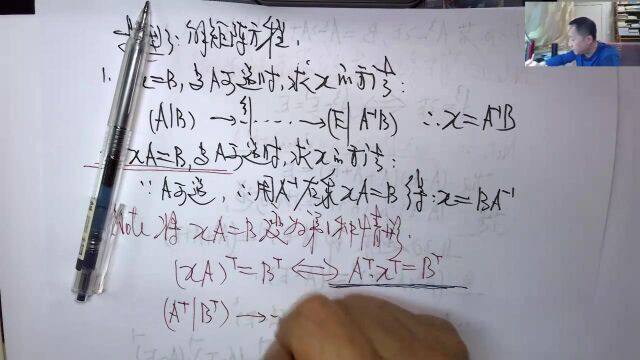 题型3:解矩阵方程.
1. x=B,当A可逆时,求x的方法:
(A|B) → ······ →(E|A⁻¹B) ∴x=A⁻¹B
xA=B,当A可逆时,求x的方法:
∵A可逆,∴用A⁻¹右乘xA=B得:x=BA⁻¹
Note 将xA=B变为第1种情形.
(xA)ᵀ=Bᵀ⟺Aᵀ·xᵀ=Bᵀ
(Aᵀ|Bᵀ)→